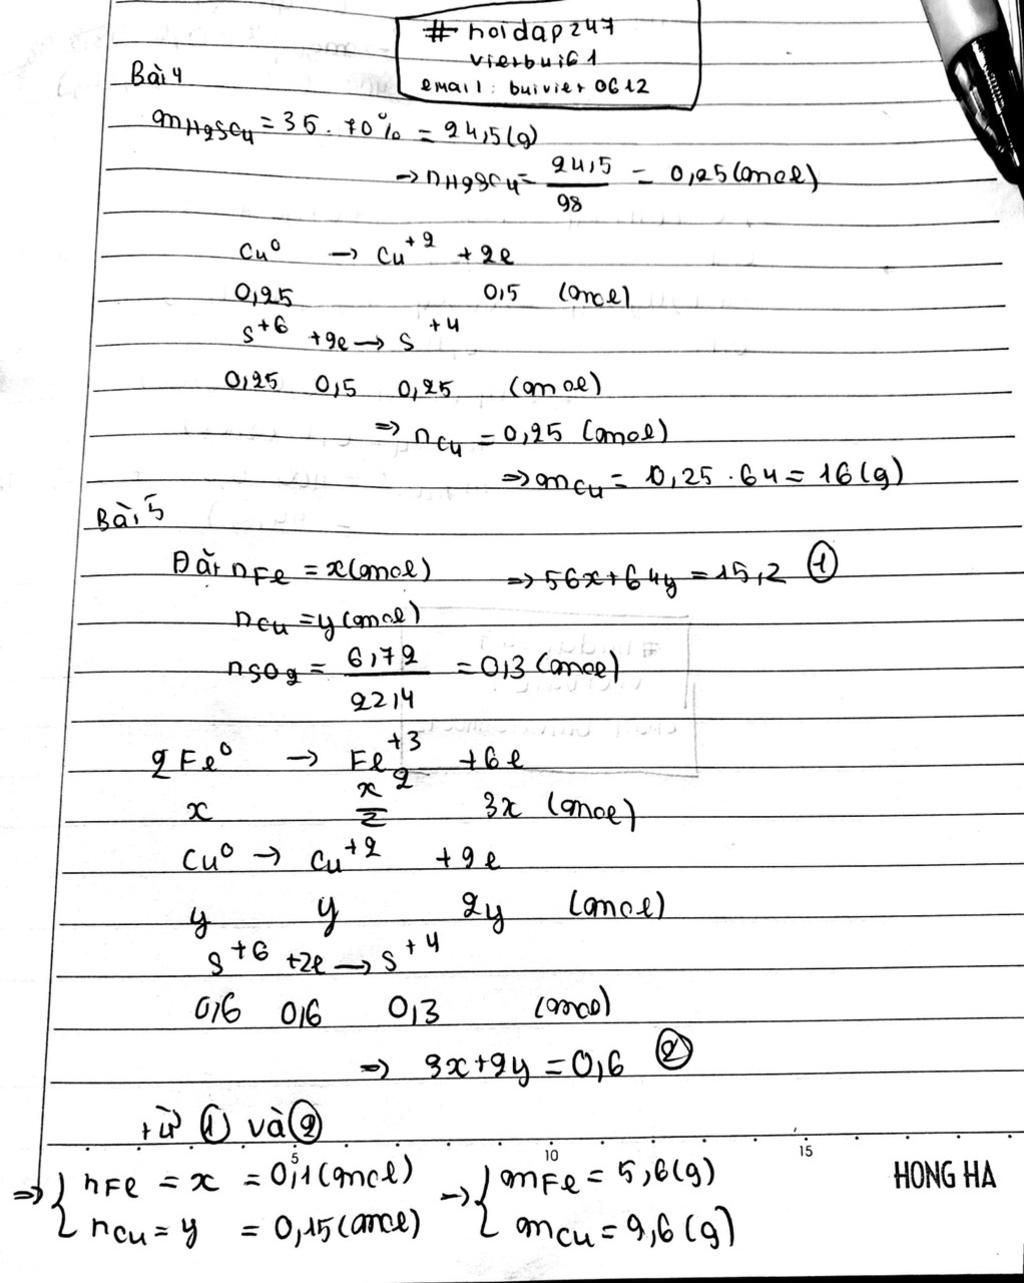 # hoidap247
vietbui61
email: buiviet0612
Bài 4
mH2SO4 = 35 . 70% = 24,5(g)
→ nH2SO4 = 24,5/98 = 0,25(mol)
Cu⁰ → Cu⁺² + 2e
0,25 0,5 (mol)
S⁺⁶ +2e → S⁺⁴
0,25 0,5 0,25 (mol)
⇒ nCu = 0,25 (mol)
⇒ mCu = 0,25 . 64 = 16(g)
Bài 5
Đặt nFe = x(mol) ⇒ 56x + 64y = 15,2 ①
nCu = y(mol)
nSO2 = 6,72/22,4 = 0,3(mol)
2Fe⁰ → Fe2⁺³ +6e
x x/2 3x (mol)
Cu⁰ → Cu⁺² +2e
y y 2y (mol)
S⁺⁶ +2e → S⁺⁴
0,6 0,6 0,3 (mol)
⇒ 3x+2y = 0,6 ②
từ ① và ②
5 10 15
⇒ { nFe = x = 0,1(mol) → { mFe = 5,6(g)
nCu = y = 0,15(mol) mCu = 9,6(g)
HONG HA